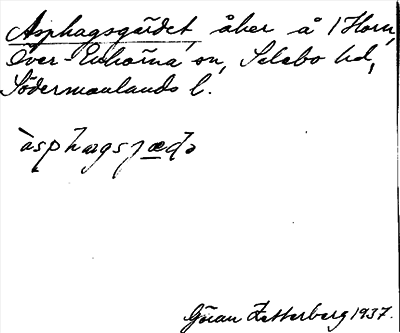 Asphagsgärdet, åker å 1 Horn,
Över-Enhörna sn, Selebo hd,
Södermanlands l.
`asphagsjædə
Göran Zetterberg 1937.